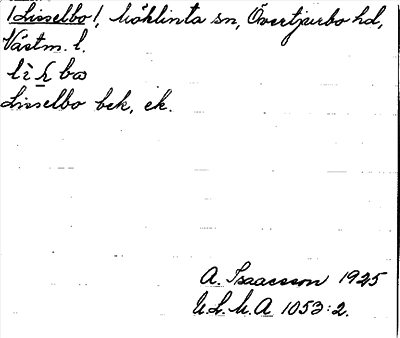 /Lisselbo/, Möklinta sn, Övertjurbo hd,
Västm. l.
Lisselbo bek, ek.
A. Isaacsson 1925
U.L.M.A 1053:2.